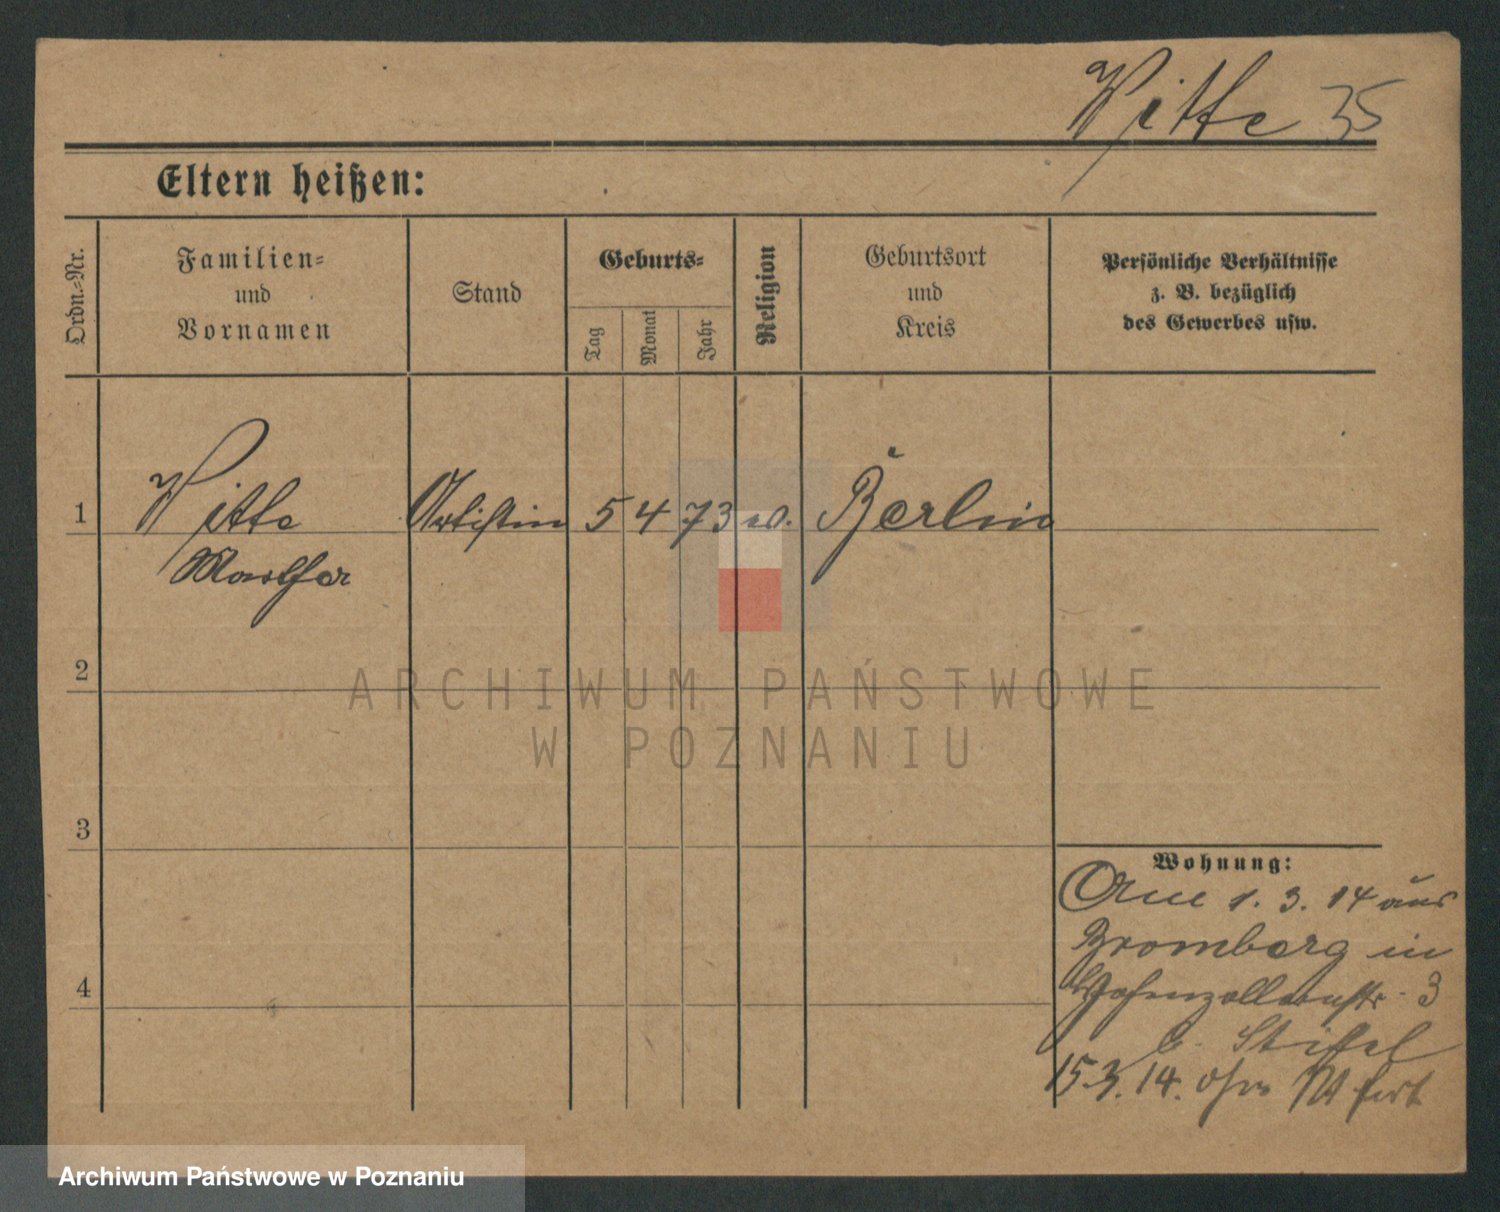 Witte 35
Eltern heißen:
Ordn.-Nr.
Familien- und Vornamen
Stand
Geburts-
Tag
Monat
Jahr
Religion
Geburtsort und Kreis
Persönliche Verhältnisse
z. B. bezüglich
des Gewerbes usw.
1 Witte Artistin 5 4 73 ev. Berlin
Martha
2
3
4
Wohnung:
1. 3. 14 aus
Bromberg in
Hohenzollernstr. 3
b. Stiffel
15.3.14. ohne fort
ARCHIWUM PAŃSTWOWE
W POZNANIU
Archiwum Państwowe w Poznaniu